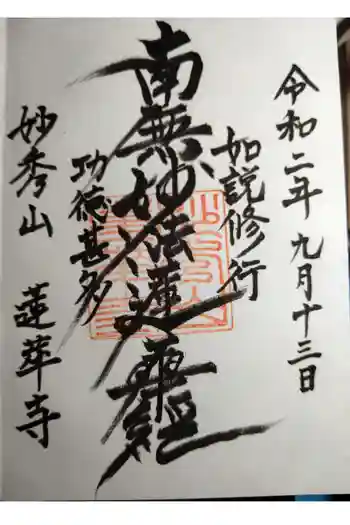 令和二年九月十三日
如説修行
南無妙法蓮華経
功徳甚多
妙秀山 蓮華寺